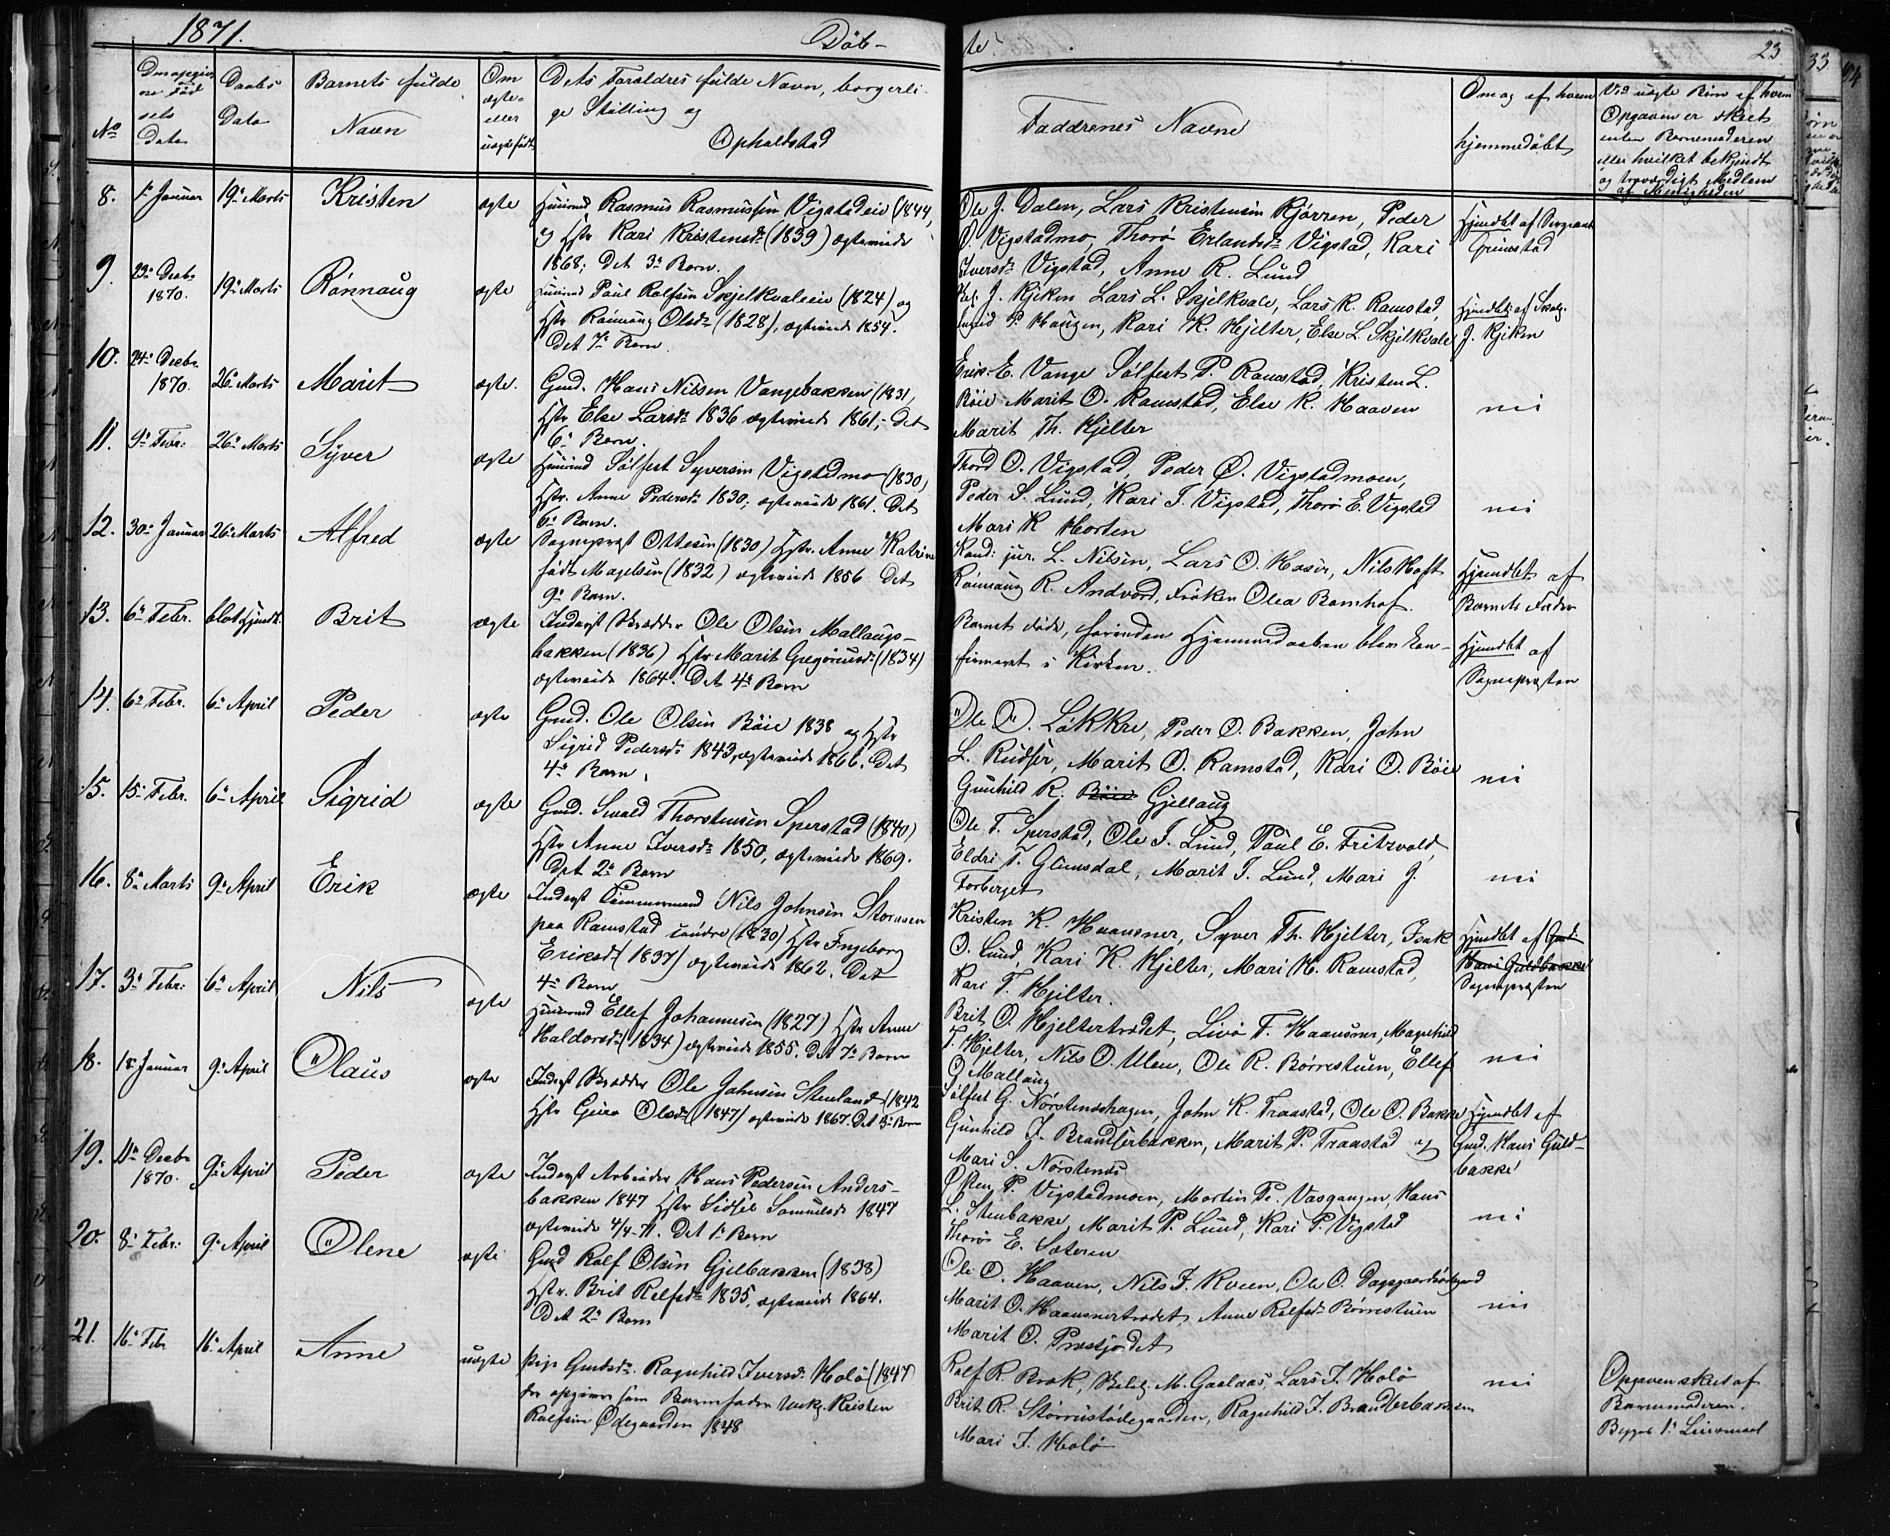 1871.
Døb-
te
23
No
Dato
Daabs
Dato
Barnets fulde
Navn
Om
ægte
eller
Dets Foraldres fulde Navn, borgerli-
ge Stilling og
Opholdsted
Faddrenes Navne
Om og af hvem
hjemmedøbt
Ved uægte Børn af hvem
Opgaven er skeet
enten Barnemoderen
eller hvilket bekjendt
og troværdigt Medlem
af Menigheden
8. 1ste Januar 19de Marts Kristen ægte Huusmd Rasmus Rasmussen Vigstadeie (1844,
og Hstr Kari Kristensdr (1839) ægteviede
1868; Det 3die Barn.
Ole J. Dalen, Lars Kristensen Kjørren, Peder
O. Vigstadmo, Thorø Erlandsdr Vigstad, Kari
Iversdr Vigstad, Anne R. Lund
Hjemdbt af Sergeant
Grimstad
9. 23de Decbr
1870. 19de Marts Rønnaug ægte Huusmd Paul Rolfsen Skjelkvaleeie (1824) og
Hstr Rønnaug Olsdr (1828), ægteviede 1854.
Det 7de Barn.
J. Kjiken Lars L. Skjelkvale, Lars R. Ramstad,
P. Haugen, Kari K. Hjelter, Else L. Skjelkvale
Hjemdbt af Skolh.
J. Kjiken
10. 24de Decbr
1870. 26de Marts Marit ægte. Gmd. Hans Nilsen Vangebakken (1831,
Hstr Else Larsdr 1836 ægteviede 1861; det
6te Barn.
Erik E. Vange Sølfest P. Ramstad, Kristen L.
Bøie Marit O. Ramstad, Else R. Haaven
Marit Th. Hjelter
nei
11. 9de Febr: 26de Marts Syver ægte Huusmd Sølfest Syversen Vigstadmo (1830,
Hstr. Anne Pedersdr 1830, ægteviede 1861. Det
6te Barn.
Thord O. Vigstad, Peder Ø. Vigstadmoen,
Peder S. Lund, Kari I. Vigstad, Thorø E. Vigstad
Mari K Horten
nei
12. 30te Januar 26de Marts Alfred ægte Sognepræst Ottesen (1830) Hstr. Anne Katrine
født Magelsen (1832) ægteviede 1856. Det
9de Barn.
Kand: jur. L. Nilsen, Lars O. Hosor, Nils Hoft
Rønnaug R. Andvord, Frøken Olea Bomhof.
Hjemdbt af
Barnets Fader
13. 6te Febr. blot hjemdt. Brit ægte Inderst Skrædder Ole Olsen Mallaugs-
bakken (1836) Hstr Marit Gregoriusdr (1834)
ægteviede 1864. Det 4de Barn
Barnet døde, forinden Hjemmedaaben blev kon-
firmeret i Kirken.
Hjemdbt af
Sognepræsten
14. 6te Febr. 6te April Peder ægte Gmd. Ole Olsen Bøie 1838 og Hstr
Sigrid Pedersdr 1843, ægteviede 1866. Det
4de Barn,
Ole O. Løkkre, Peder O. Bakken, John
L. Rudser, Marit O. Ramstad, Kari O. Bøie
Gunhild R. Bøie Gjellaug
nei
15. 15de Febr. 6te April Sigrid ægte Gmd. Iwald Thorstensen Sperstad (1840)
Hstr Anne Iversdr 1850, ægteviede 1869.
Det 2det Barn
Ole T. Sperstad, Ole I. Lund, Paul E. Fritzvold,
Eldri T. Glamsdal, Marit I. Lund, Mari J.
Forberget
nei
16. 8de Marts 9de April Erik ægte Inderst Tømmermand Nils Johnsen Storøien
paa Ramstad søndre (1830) Hstr Ingeborg
Eriksdr (1837) ægteviede 1862. Det
4de Barn
Kristen K. Haansner, Syver Th. Hjelter, Isak
O. Lund, Kari K. Hjelter, Mari H. Ramstad,
Kari T. Hjelter.
Hjemdbt af Gmd
Hans Guldbakke
Sognepræsten
17. 3die Febr: 6te April Nils ægte Huusmd Ellef Johannesen (1827) Hstr Anne
Haldorsdr (1834) ægteviede 1855. Det 7de Barn
Brit O. Hjeltertrødet, Livø T. Haansner, Magnhild
T. Hjelter, Nils O. Ulen, Ole R. Børrestuen, Ellef
O Mallaug
nei
18. 18de Januar 9de April Olaus ægte Inderst Skrædder Ole Johnsen Stenland (1842
Hstr Guro Olsdr (1847) ægteviede 1867. Det 3die Barn
Sølfest G. Nørstenshagen, John K. Traastad, Ole O. Bakke
Gunhild J. Brandlerbakken, Marit P. Traastad og
Mari S. Nørstenes
Hjemdbt af
Gmd. Hans Guld-
bakke
19. 11te Decbr
1870. 9de April Peder ægte Inderst Arbeider Hans Pedersen Anders-
bakken 1847 Hstr Sidsel Samuelsdr 1847
ægteviede 4/4-71. Det 1ste Barn
Østen P. Vigstadmoen, Martin Pe. Vasgangen, Hans
L. Stenbakke, Marit P. Lund, Kari P. Vigstad
Thorø E. Sæteren
nei
20. 8de Febr: 9de April Olene ægte Gmd Rolf Olsen Gjelbakken (1838)
Hstr. Brit Rolfsdr 1835, ægteviede 1864.
Det 2det Barn
Ole O. Haaven, Nils I. Kveen, Ole O.
Marit O. Haansnertrødet, Anne Rolfsdr Børrestuen
Marit O. Præstjordet
nei
21. 16de Febr 16de April Anne uægte Pige Gmdsdr. Ragnhild Iversdr. Holø (1847
der opgiver som Barnefader Ungk. Kristen
Rolfsen Ødegaarden 1848
Rolf R. Brok, M. Gaalaas, Lars I. Holø
Brit R. Størrustødegaarden, Ragnhild I. Brandlerbakken
Mari I. Holø
nei
Opgaven skeet af
Barnemoderen.
Begges 1ste Leiermaal